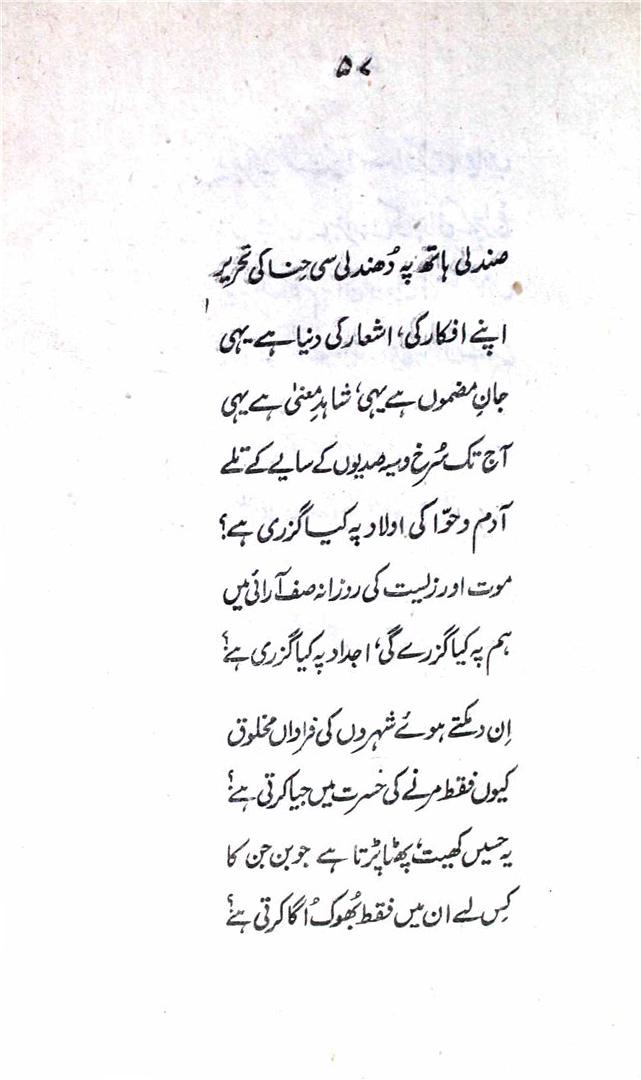 ۵۷
صندلی ہاتھ پہ دُھندلی سی حِنا کی تحریر
اپنے افکار کی، اشعار کی دنیا ہے یہی
جانِ مضموں ہے یہی، شاہدِ معنیٰ ہے یہی
آج تک سُرخ و سیہ صدیوں کے سایے کے تلے
آدم و حوّا کی اولاد پہ کیا گزری ہے؟
موت اور زلیست کی روزانہ صف آرائی میں
ہم پہ کیا گزرے گی، اجداد پہ کیا گزری ہے؟
اِن دمکتے ہوئے شہروں کی فراواں مخلوق
کیوں فقط مرنے کی حسرت میں جیا کرتی ہے؟
یہ حسیں کھیت، پھٹا پڑتا ہے جوبن جن کا
کِس لیے ان میں فقط بُھوک اُگا کرتی ہے؟